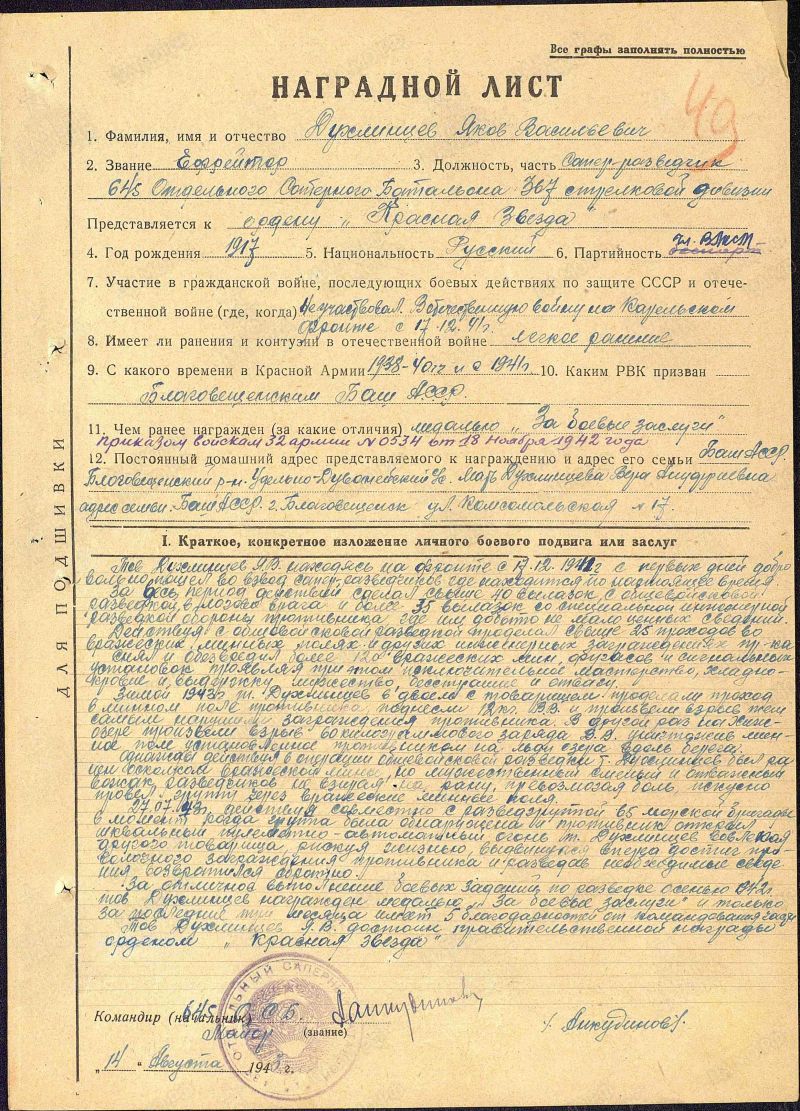 Все графы заполнять полностью
49
НАГРАДНОЙ ЛИСТ
1. Фамилия, имя и отчество Духминцев Яков Васильевич
2. Звание Ефрейтор 3. Должность, часть Сапер-разведчик
645 Отдельного Саперного Баталъона 367 стрелковой дивизии
Представляется к ордену „Красная Звезда"
4. Год рождения 1917 5. Национальность Русский 6. Партийность чл. ВЛКСМ
7. Участие в гражданской войне, последующих боевых действиях по защите СССР и отече-
ственной войне (где, когда) Не участвовал. В отечественную войну на Карельском
фронте с 17.12.41г.
8. Имеет ли ранения и контузии в отечественной войне легкое ранение
9. С какого времени в Красной Армии 1938-40гг и с 1941г. 10. Каким РВК призван
Благовещенским Баш АССР.
11. Чем ранее награжден (за какие отличия) медалью „За боевые заслуги"
приказом войскам 32 армии №0534 от 18 ноября 1942 года
12. Постоянный домашний адрес представляемого к награждению и адрес его семьи Баш АССР.
Благовещенский р-н. Удельно-Дуванейский с. Мать Духминцева Вера
адрес семьи. Баш АССР. г. Благовещенск ул. Комсомольская №17.
ДЛЯ ПОДШИВКИ
I. Краткое, конкретное изложение личного боевого подвига или заслуг
Тов Духминцев Я.В. находясь на фронте с 17.12.1941г с первых дней добро
вольно пошел во взвод сапер-разведчиков где находится по настоящее время.
За весь период действий сделал свыше 40 вылазок с общевойсковой
разведкой в логово врага и более 35 вылазок со специальной инженерной
разведкой обороны противника, где им добыто не мало ценных сведений.
Действуя с общевойсковой разведкой проделал свыше 25 проходов во
вражеских минных полях и других инженерных заграждениях пр-ка
снял и обезвредил более 120 вражеских мин, фугасов и сигнальных
установок, проявляя при этом исключительное мастерство, хладно-
кровие и выдержку, мужество бесстрашие и отвагу.
Зимой 1943г т. Духминцев в двоем с товарищем проделали проход
в минном поле противника, поднесли 12 кг. В.В и произвели взрыв тем
самым нарушили заграждения противника. В другой раз на
озере произвели взрыв килограммового заряда В.В. уничтожив мин-
ное поле установленное противником на льду озера вдоль берега.
Однажды действуя в операции общевойсковой разведки т. Духминцев был ра-
нен осколком вражеской мины, но мужественный смелый и отважный
вожак разведчиков не взирая на рану, превозмогая боль, искусно
провел группу через вражеские минные поля.
27.07.43г. действуя совместно с разведгруппой 65 морской бригады
в момент когда группа была обнаружена и противник открыл
шквальный пулеметно-автоматный огонь т. Духминцев вовлекая
другого товарища, рискуя жизнью, выдвинулся вперед достиг про-
волочного заграждения противника и разведав необходимые сведе
ния возвратился обратно.
За отличное выполнение боевых заданий по разведке осенью 1942г
тов Духминцев награжден медалью „За боевые заслуги" и только
за последние три месяца имеет 5 благодарностей от командования
Тов Духминцев Я.В. достоин правительственной награды
орденом „Красная звезда"
Командир (начальник) 645 О.С.Б.
Майор (звание) /Анкудинов/.
„14" Августа 1943 г.